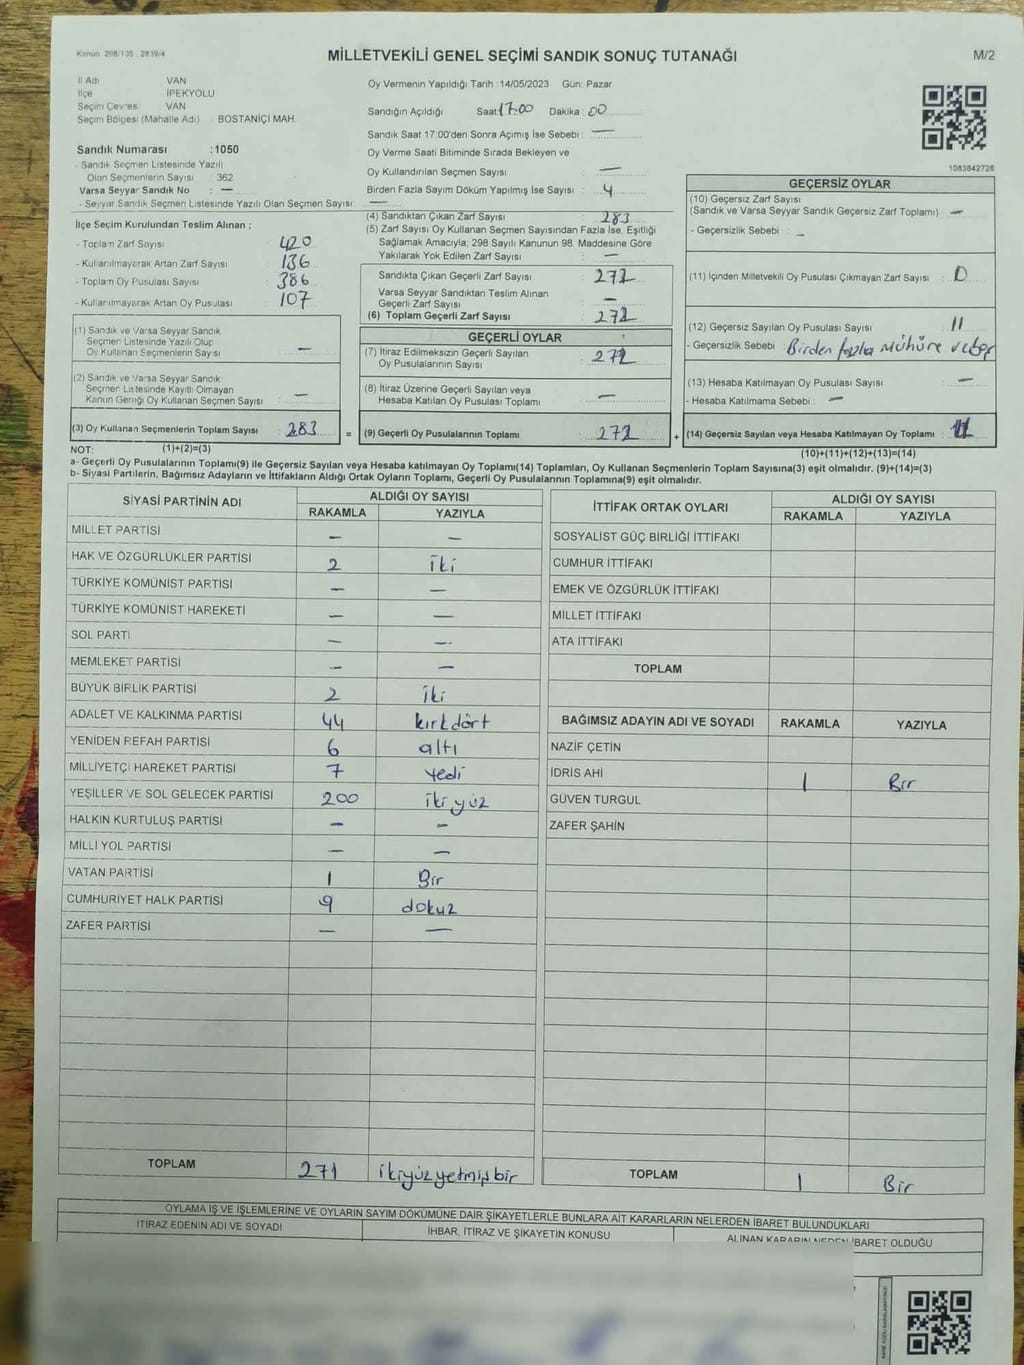 Kanun 298/105, 2839/4
MİLLETVEKİLİ GENEL SEÇİMİ SANDIK SONUÇ TUTANAĞI
M/2
İl Adı VAN
İlçe İPEKYOLU
Seçim Çevres VAN
Seçim Bölgesi (Mahalle Adı) : BOSTANİÇİ MAH.
Sandık Numarası :1050
- Sandık Seçmen Listesinde Yazılı
Olan Seçmenlerin Sayısı : 362
Varsa Seyyar Sandık No : —
- Seyyar Sandık Seçmen Listesinde Yazılı Olan Seçmen Sayısı: —
İlçe Seçim Kurulundan Teslim Alınan ;
- Toplam Zarf Sayısı 420
- Kullanılmayarak Artan Zarf Sayısı : 136
- Toplam Oy Pusulası Sayısı : 386
- Kullanılmayarak Artan Oy Pusulası : 107
(1) Sandık ve Varsa Seyyar Sandık
Seçmen Listesinde Yazılı Olup
Oy Kullanan Seçmenlerin Sayısı : —
(2) Sandık ve Varsa Seyyar Sandık
Seçmen Listesinde Kayıtlı Olmayan
Kanun Gereği Oy Kullanan Seçmen Sayısı : —
(3) Oy Kullanan Seçmenlerin Toplam Sayısı : 283
(1)+(2)=(3)
Oy Vermenin Yapıldığı Tarih :14/05/2023 Gün: Pazar
Sandığın Açıldığı Saat: 17:00 Dakika : 00
Sandık Saat 17:00'den Sonra Açımış İse Sebebi : —
Oy Verme Saati Bitiminde Sırada Bekleyen ve
Oy Kullandırılan Seçmen Sayısı : —
Birden Fazla Sayım Döküm Yapılmış İse Sayısı : 4
(4) Sandıktan Çıkan Zarf Sayısı : 283
(5) Zarf Sayısı Oy Kullanan Seçmen Sayısından Fazla İse, Eşitliği
Sağlamak Amacıyla, 298 Sayılı Kanunun 98. Maddesine Göre
Yakılarak Yok Edilen Zarf Sayısı : —
Sandıkta Çıkan Geçerli Zarf Sayısı : 272
Varsa Seyyar Sandıktan Teslim Alınan
Geçerli Zarf Sayısı : —
(6) Toplam Geçerli Zarf Sayısı : 272
GEÇERLİ OYLAR
(7) İtiraz Edilmeksizin Geçerli Sayılan
Oy Pusulalarının Sayısı : 272
(8) İtiraz Üzerine Geçerli Sayılan veya
Hesaba Katılan Oy Pusulası Toplamı : —
= (9) Geçerli Oy Pusulalarının Toplamı : 272 +
1083842728
GEÇERSİZ OYLAR
(10) Geçersiz Zarf Sayısı
(Sandık ve Varsa Seyyar Sandık Geçersiz Zarf Toplamı) : —
- Geçersizlik Sebebi : —
(11) İçinden Milletvekili Oy Pusulası Çıkmayan Zarf Sayısı : 0
(12) Geçersiz Sayılan Oy Pusulası Sayısı : 11
- Geçersizlik Sebebi : Birden fazla mühüre
(13) Hesaba Katılmayan Oy Pusulası Sayısı : —
- Hesaba Katılmama Sebebi : —
(14) Geçersiz Sayılan veya Hesaba Katılmayan Oy Toplamı : 11
(10)+(11)+(12)+(13)=(14)
NOT:
a- Geçerli Oy Pusulalarının Toplamı(9) ile Geçersiz Sayılan veya Hesaba katılmayan Oy Toplamı(14) Toplamları, Oy Kullanan Seçmenlerin Toplam Sayısına(3) eşit olmalıdır. (9)+(14)=(3)
b- Siyasi Partilerin, Bağımsız Adayların ve İttifakların Aldığı Ortak Oyların Toplamı, Geçerli Oy Pusulalarının Toplamına(9) eşit olmalıdır.
SİYASİ PARTİNİN ADI ALDIĞI OY SAYISI
RAKAMLA YAZIYLA
MİLLET PARTİSİ — —
HAK VE ÖZGÜRLÜKLER PARTİSİ 2 iki
TÜRKİYE KOMÜNİST PARTİSİ — —
TÜRKİYE KOMÜNİST HAREKETİ — —
SOL PARTİ — —
MEMLEKET PARTİSİ — —
BÜYÜK BİRLİK PARTİSİ 2 iki
ADALET VE KALKINMA PARTİSİ 44 kırkdört
YENİDEN REFAH PARTİSİ 6 altı
MİLLİYETÇİ HAREKET PARTİSİ 7 yedi
YEŞİLLER VE SOL GELECEK PARTİSİ 200 iki yüz
HALKIN KURTULUŞ PARTİSİ — —
MİLLİ YOL PARTİSİ — —
VATAN PARTİSİ 1 Bir
CUMHURİYET HALK PARTİSİ 9 dokuz
ZAFER PARTİSİ — —
TOPLAM 271 ikiyüzyetmişbir
İTTİFAK ORTAK OYLARI ALDIĞI OY SAYISI
RAKAMLA YAZIYLA
SOSYALİST GÜÇ BİRLİĞİ İTTİFAKI
CUMHUR İTTİFAKI
EMEK VE ÖZGÜRLÜK İTTİFAKI
MİLLET İTTİFAKI
ATA İTTİFAKI
TOPLAM
BAĞIMSIZ ADAYIN ADI VE SOYADI RAKAMLA YAZIYLA
NAZİF ÇETİN
İDRİS AHİ 1 Bir
GÜVEN TURGUL
ZAFER ŞAHİN
TOPLAM 1 Bir
OYLAMA İŞ VE İŞLEMLERİNE VE OYLARIN SAYIM DÖKÜMÜNE DAİR ŞİKAYETLERLE BUNLARA AİT KARARLARIN NELERDEN İBARET BULUNDUKLARI
İTİRAZ EDENİN ADI VE SOYADI İHBAR, İTİRAZ VE ŞİKAYETİN KONUSU ALINAN KARARIN NEDEN İBARET OLDUĞU